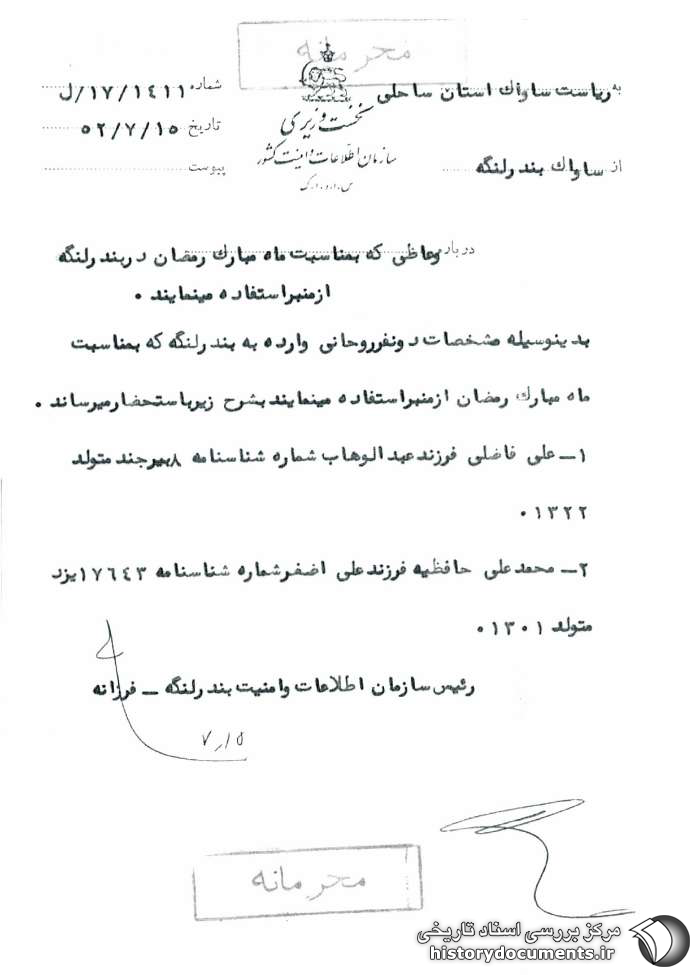 محرمانه
به ریاست ساواک استان ساحلی
شماره ۱۷/۱٤۱۱/ل
نخست وزیری
تاریخ ۵۲/۷/۱۵
سازمان اطلاعات و امنیت کشور
از ساواک بندرلنگه
پیوست
س.ا.و.ا.ک
درباره وعاظی که بمناسبت ماه مبارک رمضان در بندرلنگه
ازمنبراستفاده مینمایند .
بدینوسیله مشخصات دونفرروحانی وارده به بندرلنگه که بمناسبت
ماه مبارک رمضان ازمنبراستفاده مینمایند بشرح زیرباستحضارمیرساند .
۱ـ علی فاضلی فرزند عبدالوهاب شماره شناسنامه ۸ بیرجند متولد
۱۳۲۲ .
۲ـ محمدعلی حافظیه فرزند علی اضغر شماره شناسنامه ۱۷٦٤۳ یزد
متولد ۱۳۰۱ .
رئیس سازمان اطلاعات وامنیت بندرلنگه ـ فرزانه
۷/۱۵
محرمانه
مرکز بررسی اسناد تاریخی
historydocuments.ir